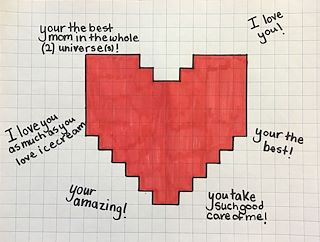 your the best
mom in the whole
(2) universe(s)!
I love
you!
I love you
as much as you
love icecream
your the
best!
your
amazing!
you take
such good
care of me!